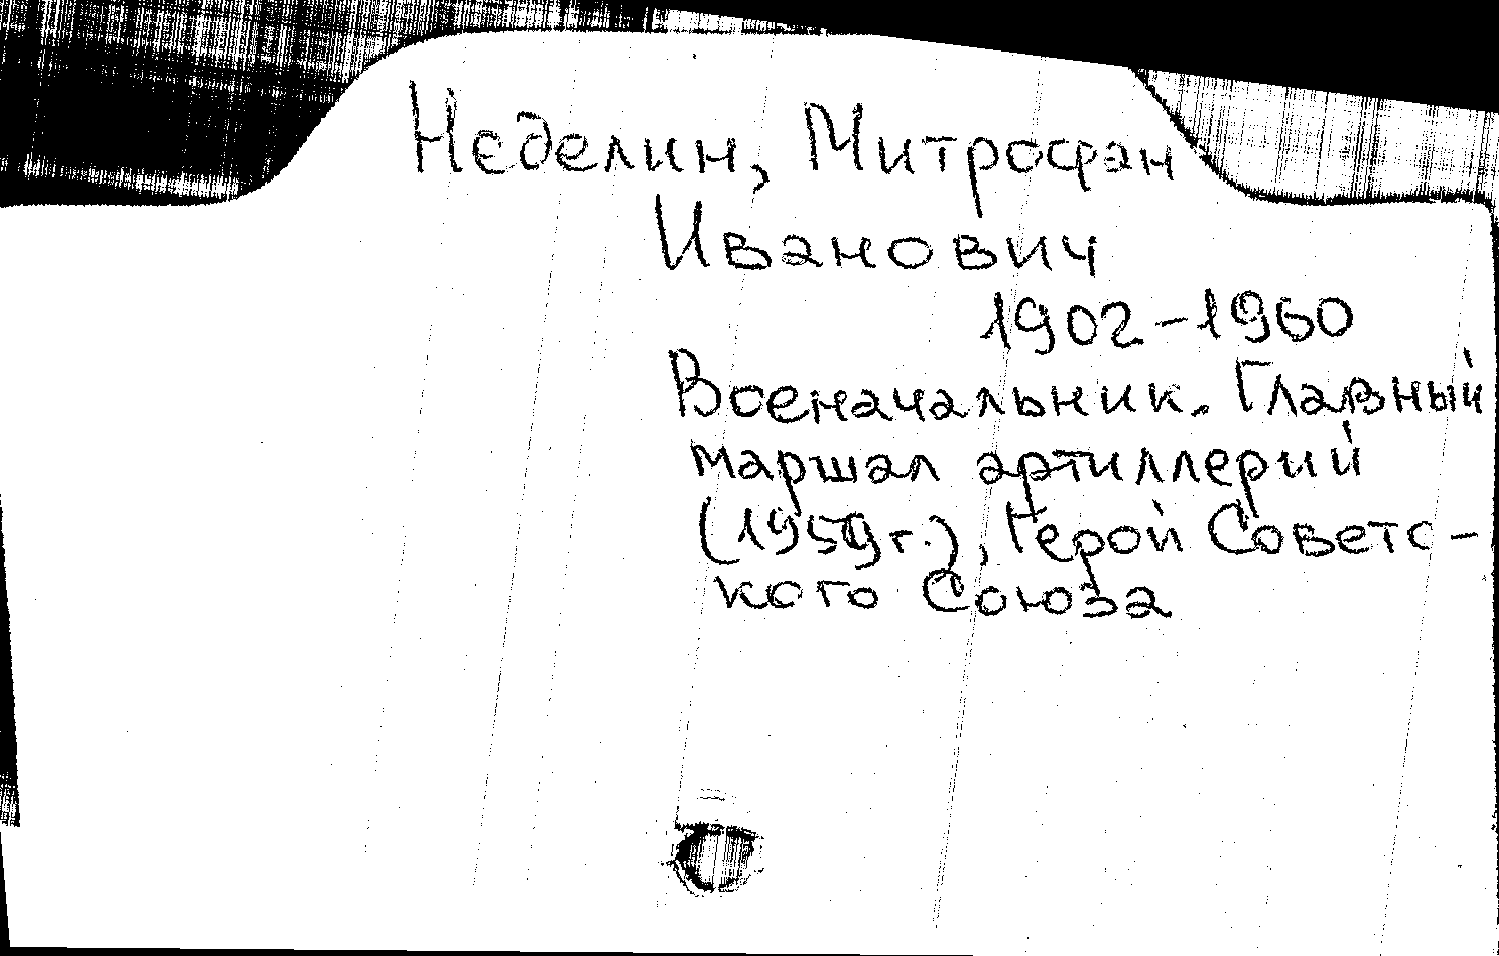 Неделин, Митрофан
Иванович
1902-1960
Военачальник. Главный
маршал артиллерии
(1959г.), Герой Советс-
кого Союза